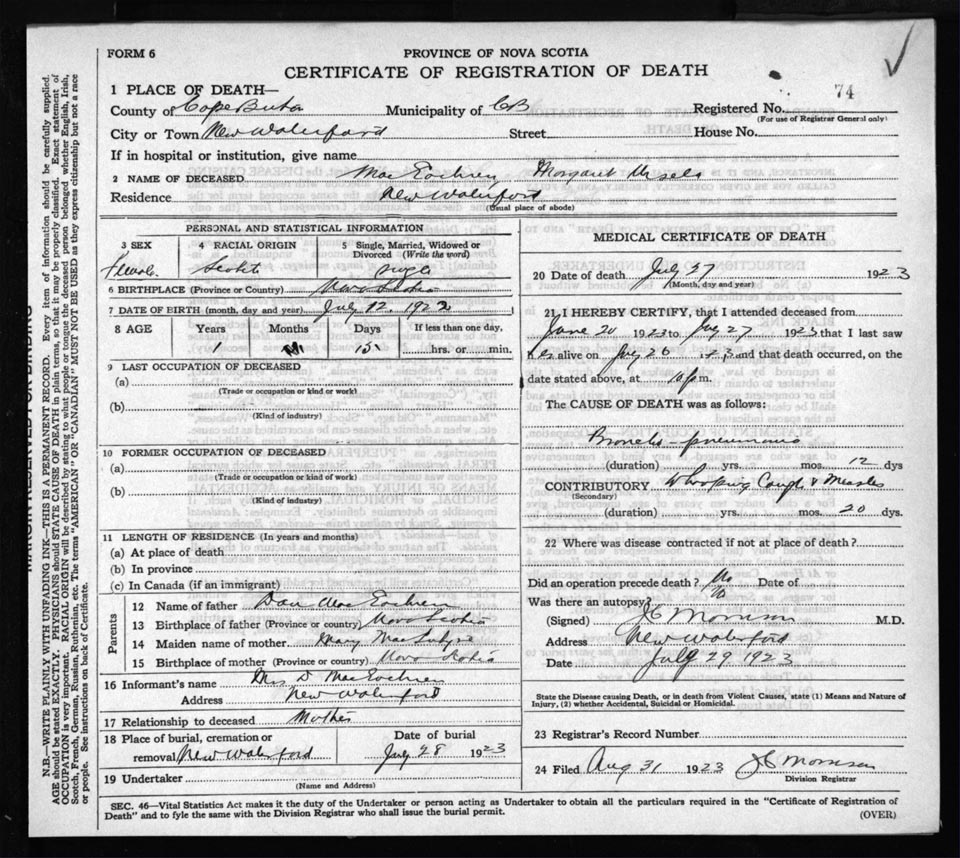 FORM 6
PROVINCE OF NOVA SCOTIA
CERTIFICATE OF REGISTRATION OF DEATH
74
1 PLACE OF DEATH—
County of Cape Breton Municipality of CB Registered No.
(For use of Registrar General only)
City or Town New Waterford Street House No.
If in hospital or institution, give name
2 NAME OF DECEASED Mac Eachren Margaret
Residence New Waterford
(Usual place of abode)
PERSONAL AND STATISTICAL INFORMATION
3 SEX Female
4 RACIAL ORIGIN Scotch
5 Single, Married, Widowed or Divorced (Write the word) Single
6 BIRTHPLACE (Province or Country) Nova Scotia
7 DATE OF BIRTH (month, day and year) July 12, 1922
8 AGE Years Months Days If less than one day,
1 15 hrs. or min.
9 LAST OCCUPATION OF DECEASED
(a)
(Trade or occupation or kind or work)
(b)
(Kind of industry)
10 FORMER OCCUPATION OF DECEASED
(a)
(Trade or occupation or kind or work)
(b)
(Kind of industry)
11 LENGTH OF RESIDENCE (In years and months)
(a) At place of death
(b) In province
(c) In Canada (if an immigrant)
Parents
12 Name of father Dan Mac Eachren
13 Birthplace of father (Province or country) Nova Scotia
14 Maiden name of mother Mary Mac Intyre
15 Birthplace of mother (Province or country) Nova Scotia
16 Informant's name Mrs D MacEachren
Address New Waterford
17 Relationship to deceased Mother
18 Place of burial, cremation or Date of burial
removal New Waterford July 28 1923
19 Undertaker
(Name and Address)
MEDICAL CERTIFICATE OF DEATH
20 Date of death July 27 1923
(Month, day and year)
21 I HEREBY CERTIFY, that I attended deceased from
June 20 1923 to July 27 1923 that I last saw
her alive on July 26 1923 and that death occurred, on the
date stated above, at 10 p m.
The CAUSE OF DEATH was as follows:
Broncho-pneumonia
(duration) yrs. mos. 12 dys
CONTRIBUTORY Whooping Cough & Measles
(Secondary)
(duration) yrs. mos. 20 dys.
22 Where was disease contracted if not at place of death?
Did an operation precede death? No Date of
Was there an autopsy? No
(Signed) JC Morrison M.D.
Address New Waterford
Date July 29 1923
State the Disease causing Death, or in death from Violent Causes, state (1) Means and Nature of
Injury, (2) whether Accidental, Suicidal or Homicidal.
23 Registrar's Record Number
24 Filed Aug 31 1923 JC Morrison
Division Registrar
SEC. 46—Vital Statistics Act makes it the duty of the Undertaker or person acting as Undertaker to obtain all the particulars required in the "Certificate of Registration of
Death" and to fyle the same with the Division Registrar who shall issue the burial permit.
(OVER)
MARGIN RESERVED FOR BINDING
N.B.—WRITE PLAINLY WITH UNFADING INK—THIS IS A PERMANENT RECORD. Every item of information should be carefully supplied.
AGE should be stated EXACTLY. PHYSICIANS should STATE CAUSE OF DEATH in plain terms, so that it may be properly classified. Exact statement of
OCCUPATION is very important. RACIAL ORIGIN will be described by stating to what people or tongue the deceased person belonged whether English, Irish,
Scotch, French, German, Russian, Ruthenian, etc. The terms "AMERICAN" OR "CANADIAN" MUST NOT BE USED as they express citizenship but not a race
or people. See instructions on back of Certificate.